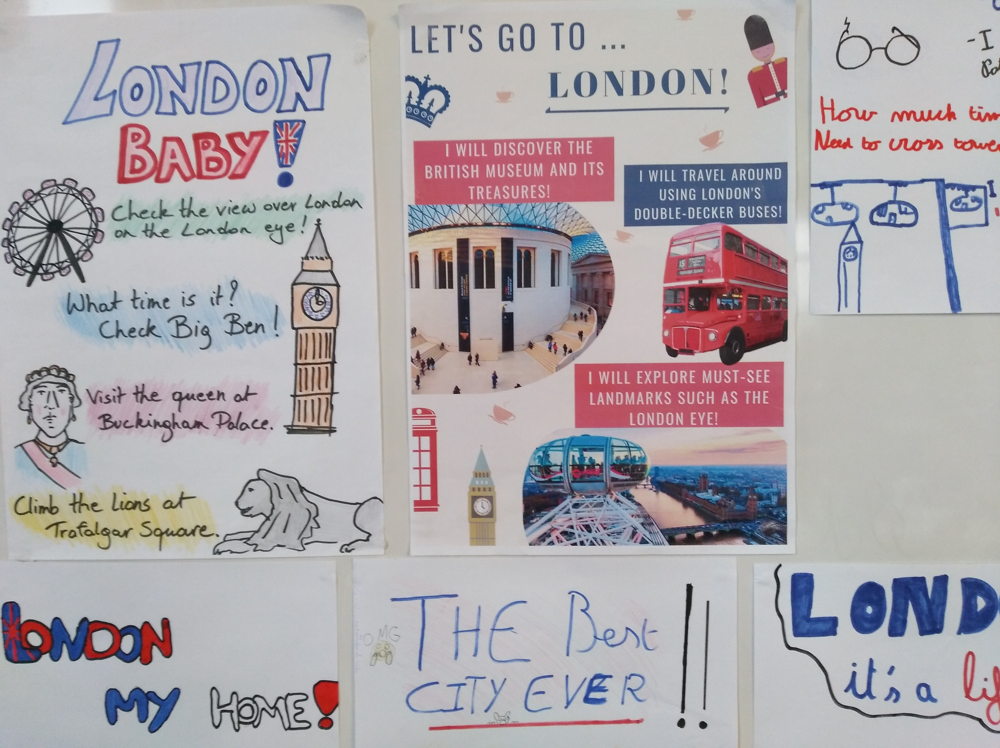 LONDON
BABY!
Check the view over London
on the London eye!
What time is it?
Check Big Ben!
Visit the queen at
Buckingham Palace.
Climb the lions at
Trafalgar Square.
LET'S GO TO ...
LONDON!
I WILL DISCOVER THE
BRITISH MUSEUM AND ITS
TREASURES!
I WILL TRAVEL AROUND
USING LONDON'S
DOUBLE-DECKER BUSES!
15
I WILL EXPLORE MUST-SEE
LANDMARKS SUCH AS THE
LONDON EYE!
- I
How much tim
Need to cross tower
LONDON
MY HOME!
OMG
THE Best
CITY EVER !!
LOND
it's a lif